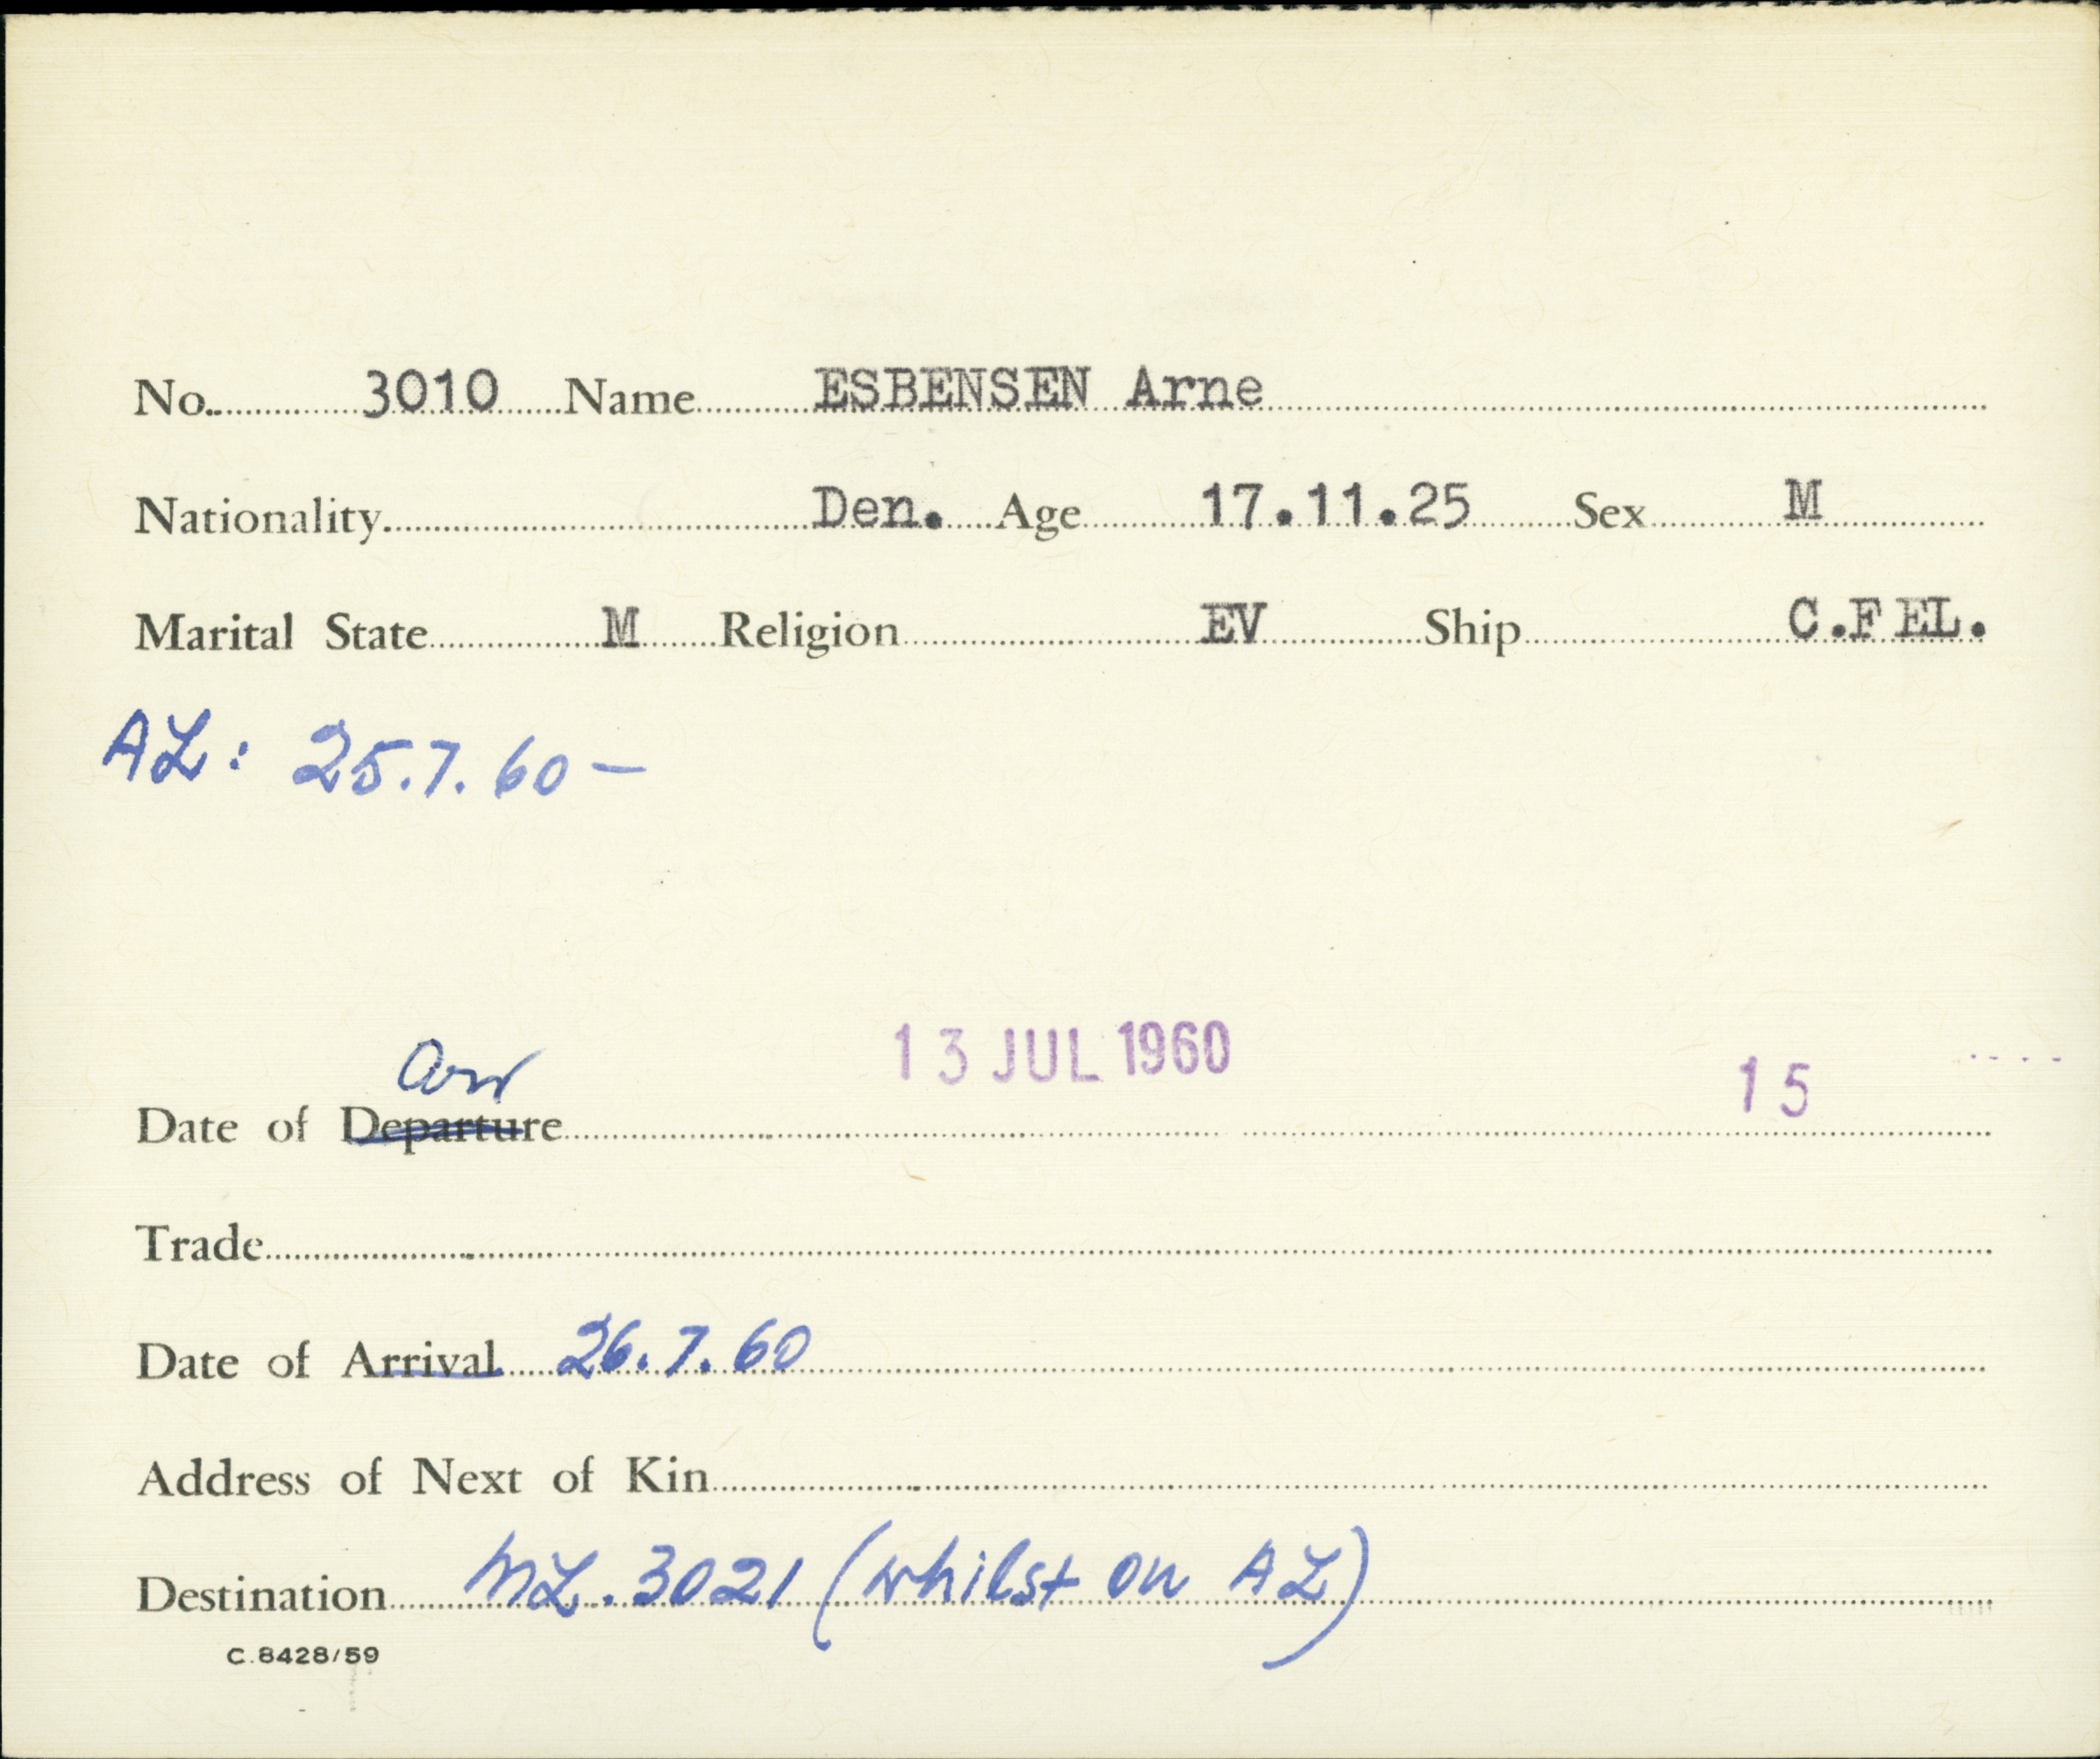 No. 3010 Name ESBENSEN Arne
Nationality Den. Age 17.11.25 Sex M
Marital State M Religion EV Ship C.FEL.
AL: 25.7.60 –
Arr 13 JUL 1960 15
Date of Departure
Trade
Date of Arrival 26.7.60
Address of Next of Kin
Destination ML. 3021 (whilst on AL)
C.8428/59